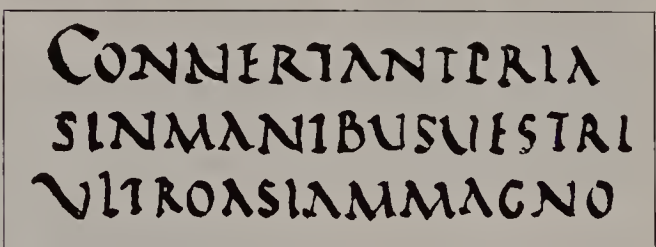 CONNERTANTPRIA
SINMANIBUSUESTRI
VLTROASIAMMAGNO